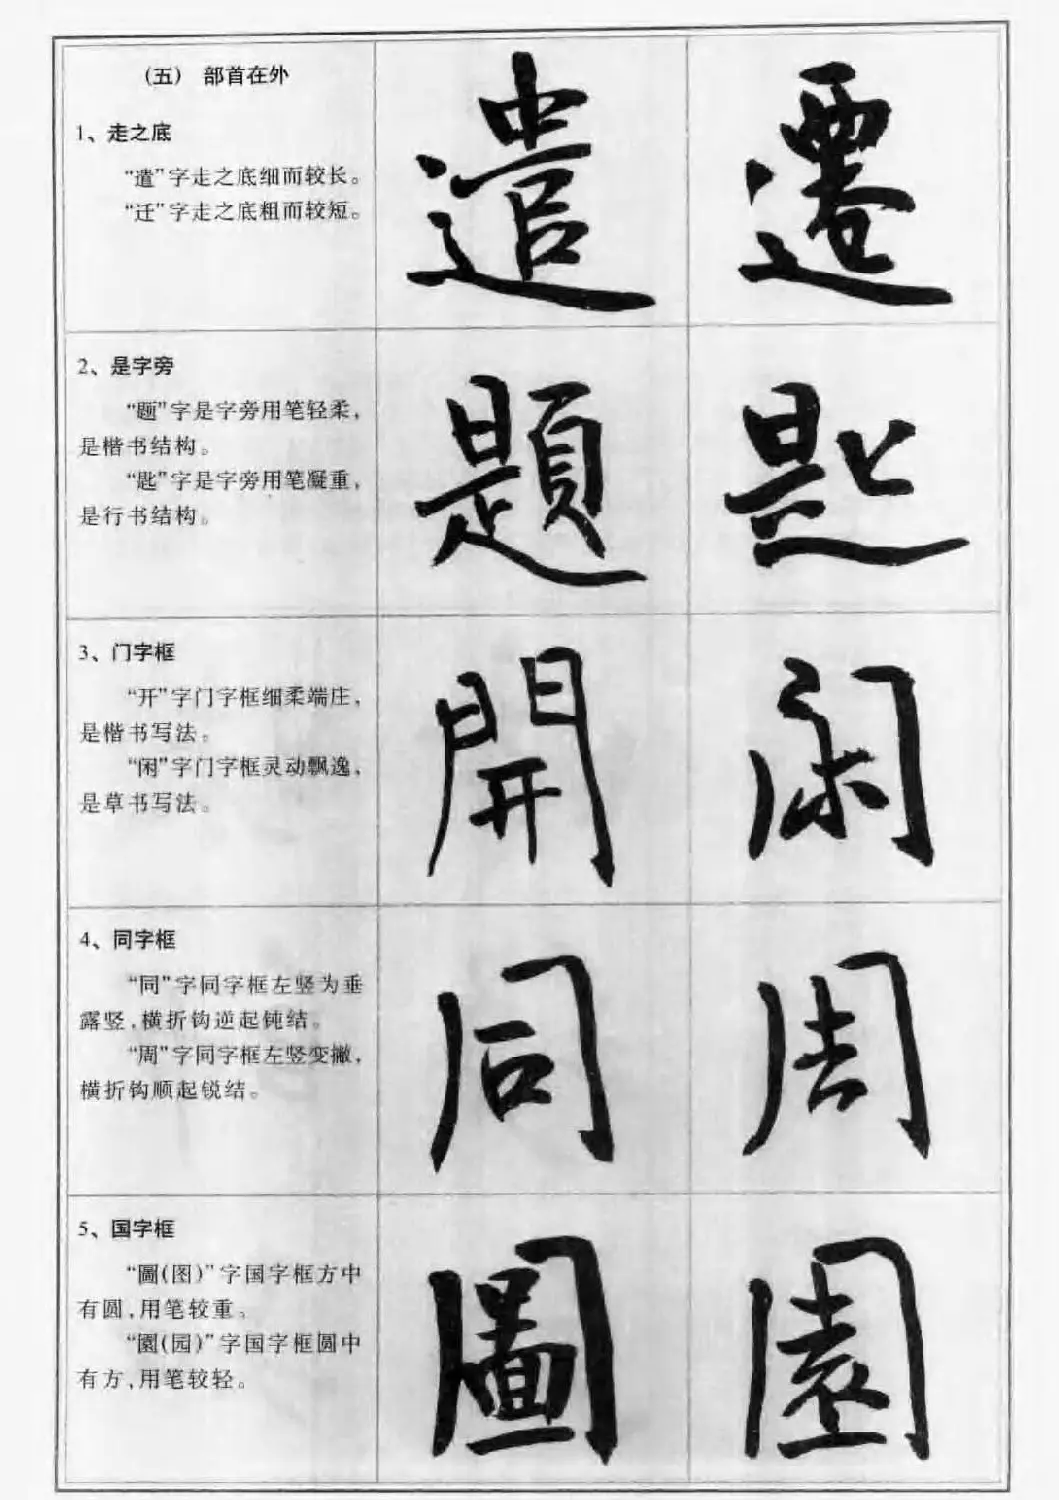 (五) 部首在外
1、走之底
“遣”字走之底细而较长。
“迁”字走之底粗而较短。
遣 遷
2、是字旁
“题”字是字旁用笔轻柔，
是楷书结构。
“匙”字是字旁用笔凝重，
是行书结构。
題 匙
3、门字框
“开”字门字框细柔端庄，
是楷书写法。
“闲”字门字框灵动飘逸，
是草书写法。
開 闲
4、同字框
“同”字同字框左竖为垂
露竖，横折钩逆起钝结。
“周”字同字框左竖变撇，
横折钩顺起锐结。
同 周
5、国字框
“圖(图)”字国字框方中
有圆，用笔较重。
“園(园)”字国字框圆中
有方，用笔较轻。
圖 園